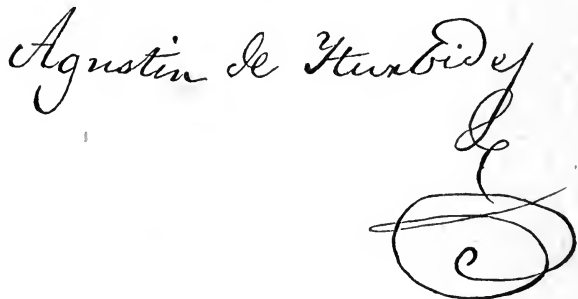 Agustin de Yturbide